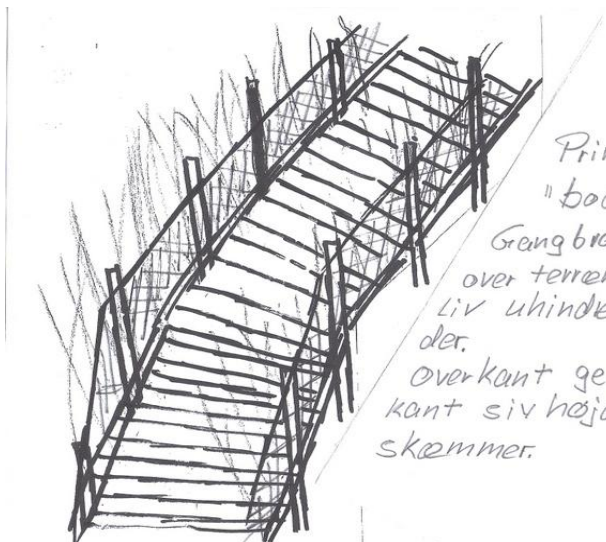 Pri
"bo
Gangbro
over terræ
Liv uhind
der.
overkant ge
kant siv høj
skæmmer.